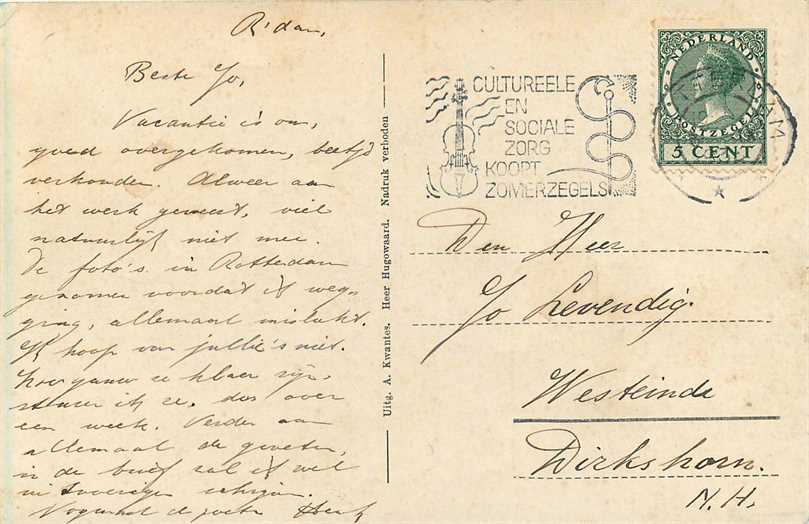 R'dam,
Beste Jo,
Vacantie is om,
goed overgekomen, beetje
verkouden. Alweer aan
het werk geweest, viel
natuurlijk niet mee.
De foto's in Rotterdam
genomen voordat ik weg-
ging, allemaal mislukt.
Ik hoop van jullie's niet.
Hoo gauw ze klaar zijn,
stuur ik ze dus over
een week. Verder aan
allemaal de groeten,
in de brief zal ik wel
schrijven.
Nogmaals de groeten Henk
Uitg. A. Kwantes. Heer Hugowaard. Nadruk verboden
CULTUREELE
EN
SOCIALE
ZORG
KOOPT
ZOMERZEGELS
NEDERLAND
POSTZEGEL
5 CENT
Den Heer
Jo Levendig.
Westeinde
Dirkshorn.
N.H.